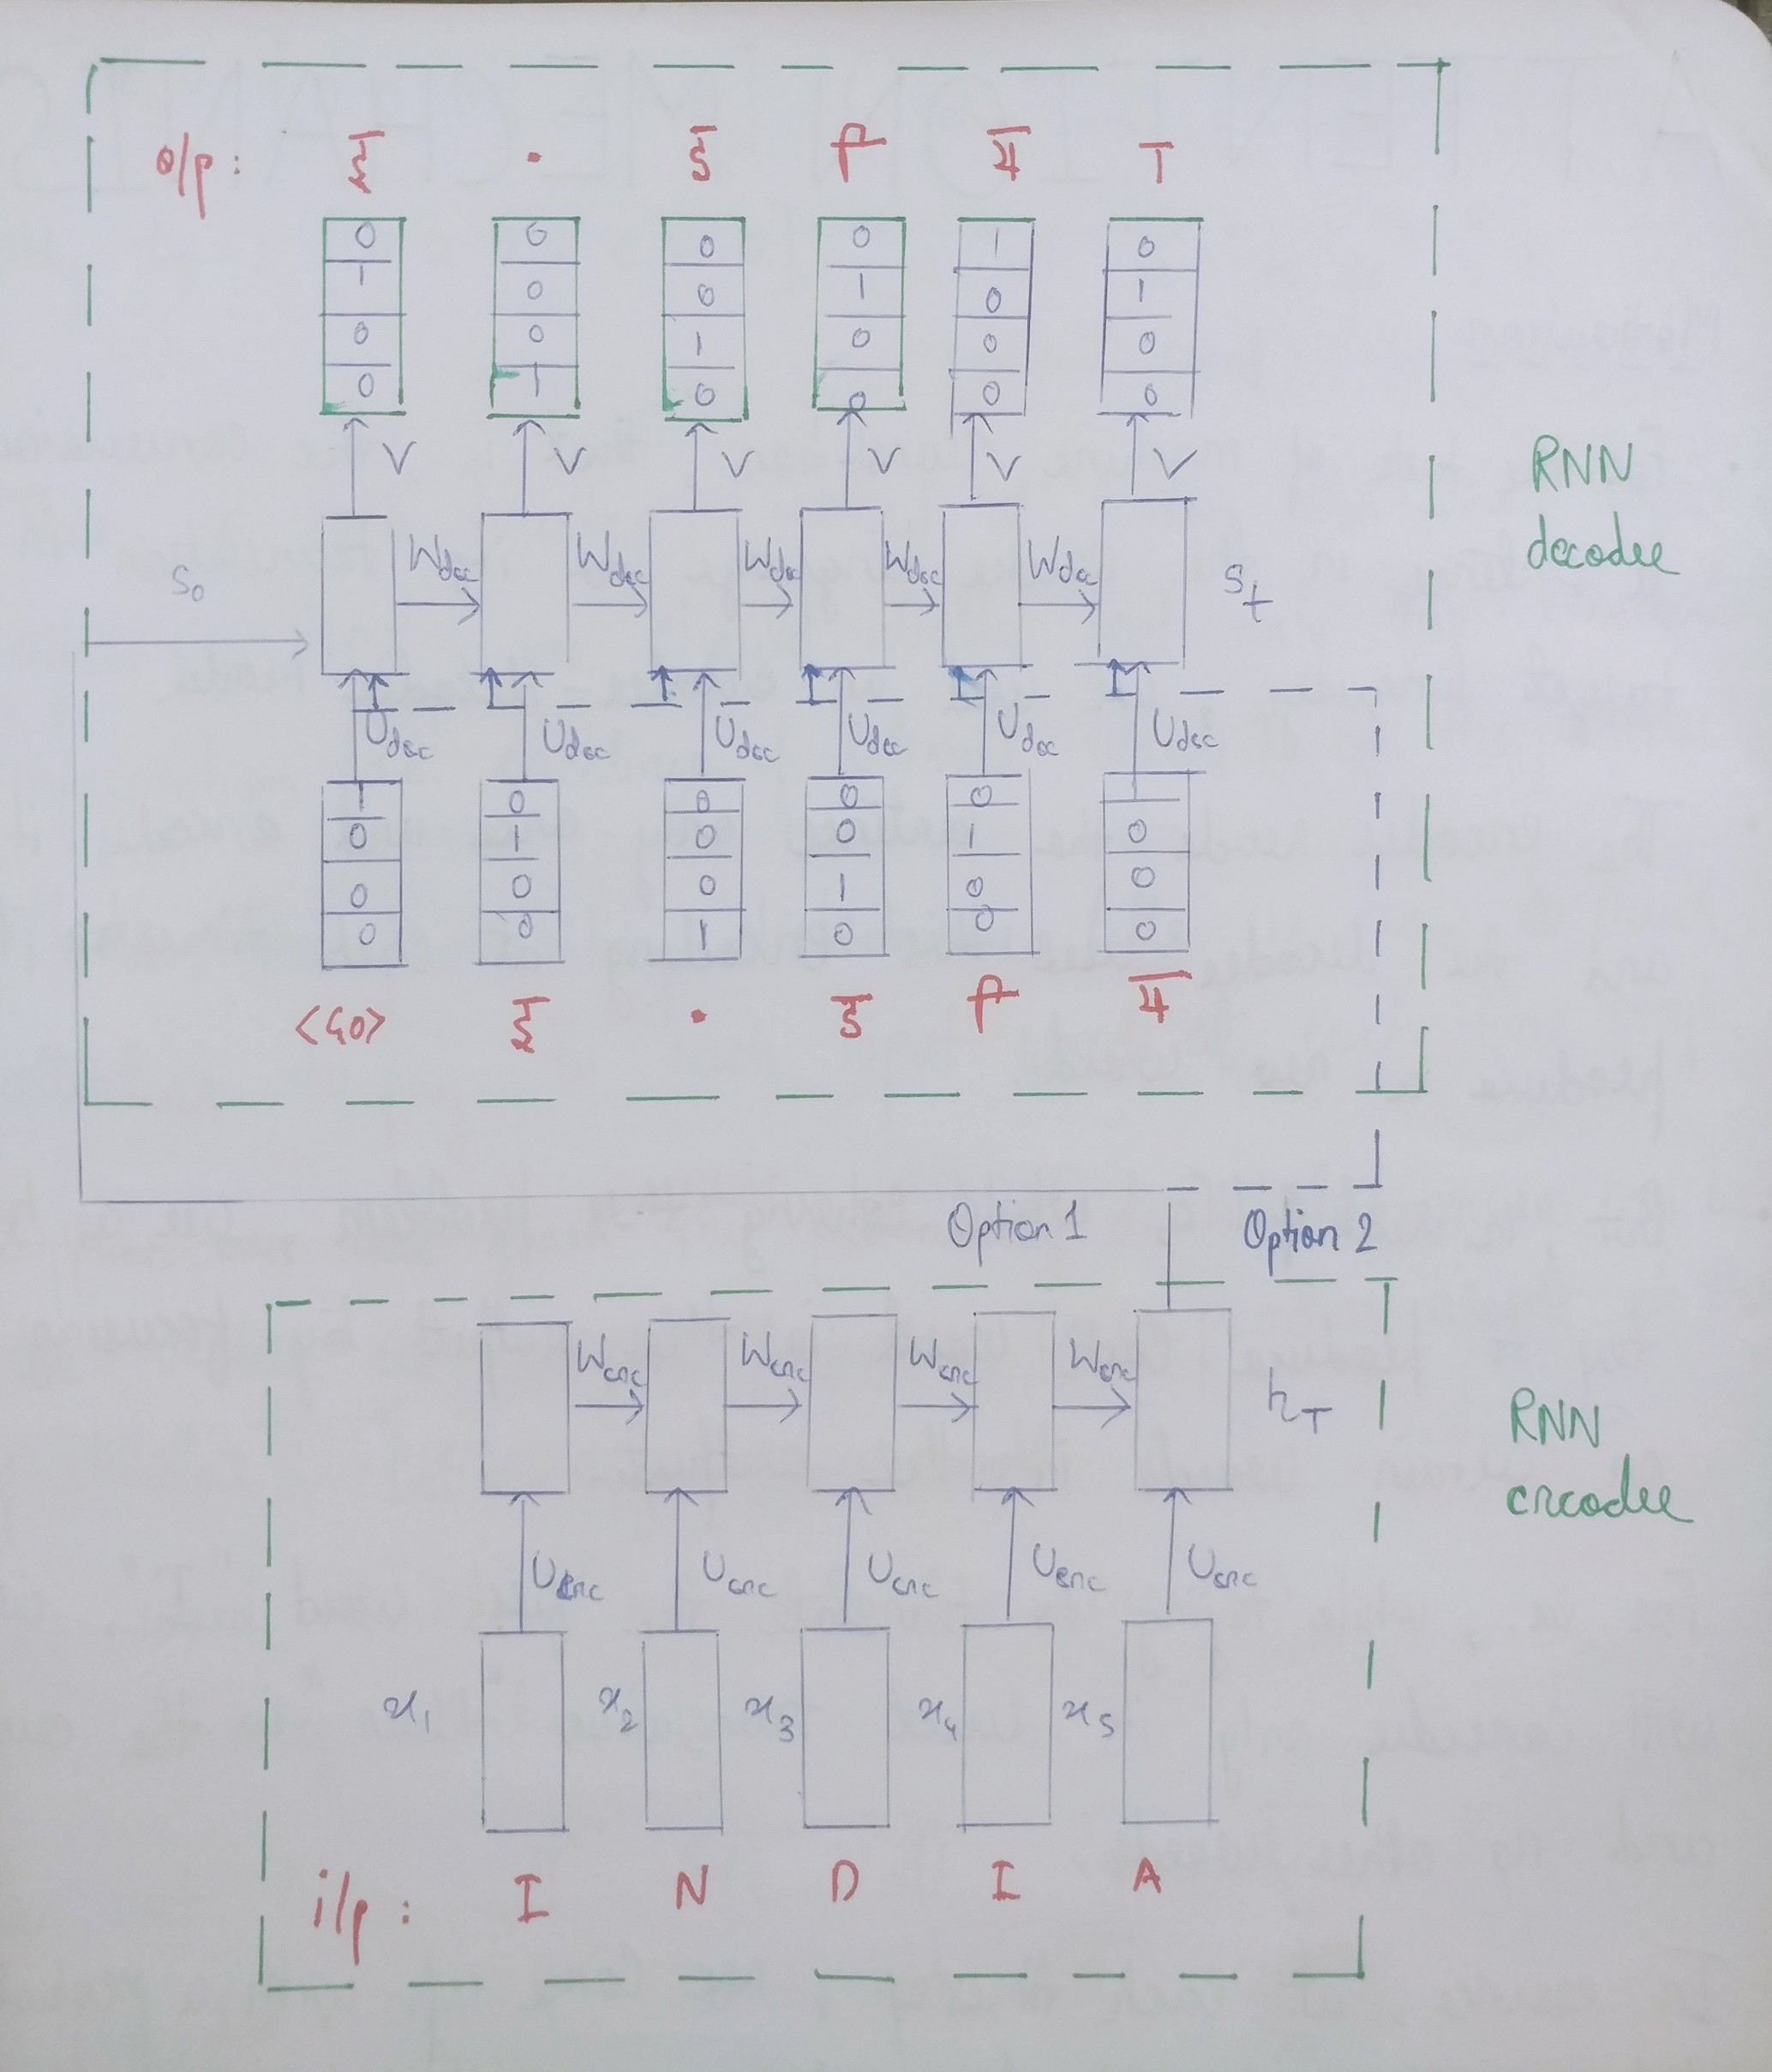 o/p : ई • ड ि य ा
0 0 0 0 1 0
1 0 0 1 0 1
0 0 1 0 0 0
0 1 0 0 0 0
V V V V V V
RNN
decoder
S₀ Wdec Wdec Wdec Wdec Wdec Sₜ
Udec Udec Udec Udec Udec Udec
1 0 0 0 0 1
0 1 0 0 1 0
0 0 0 1 0 0
0 0 1 0 0 0
<GO> ई • ड ि य
Option 1 Option 2
Wenc Wenc Wenc Wenc hT
RNN
encoder
Uenc Uenc Uenc Uenc Uenc
x₁ x₂ x₃ x₄ x₅
i/p : I N D I A